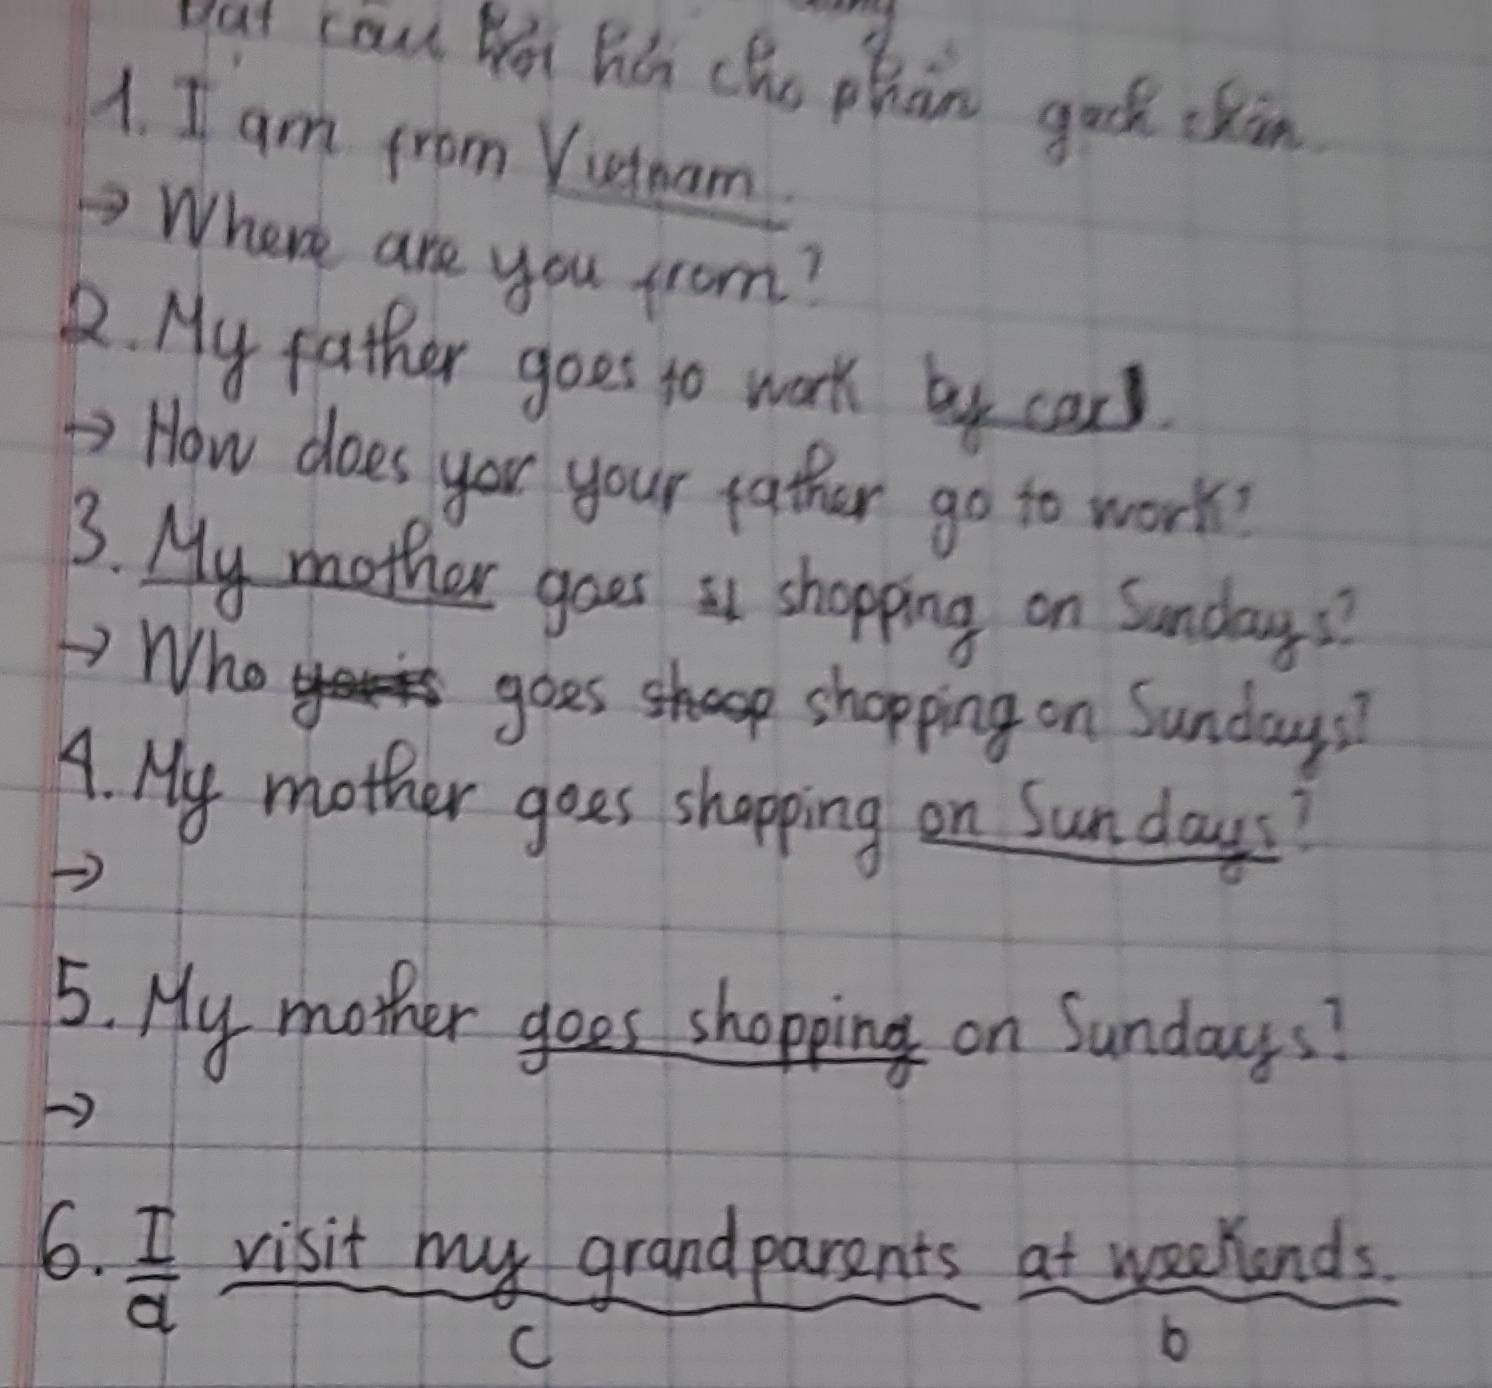 Đặt câu hỏi hỏi cho phần gạch chân
1. I am from Vietnam.
→ Where are you from?
2. My father goes to work by car.
→ How does your father go to work?
3. My mother goes shopping on Sundays?
→ Who goes shopping on Sundays?
4. My mother goes shopping on Sundays?
→
5. My mother goes shopping on Sundays?
→
6. I visit my grandparents at weekends.
a c b